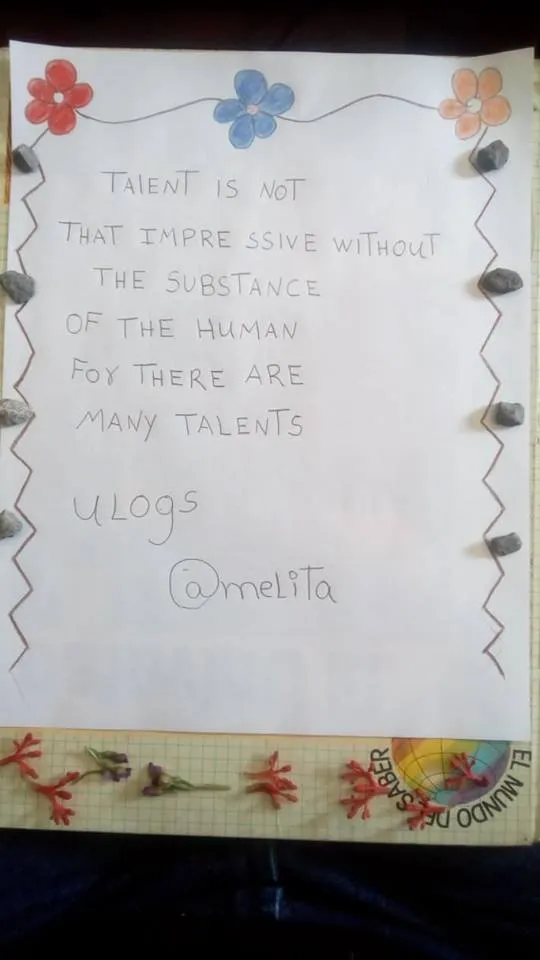 TALENT IS NOT
THAT IMPRESSIVE WITHOUT
THE SUBSTANCE
OF THE HUMAN
FOR THERE ARE
MANY TALENTS
ULOGS
@meLiTa
EL MUNDO DE SABER